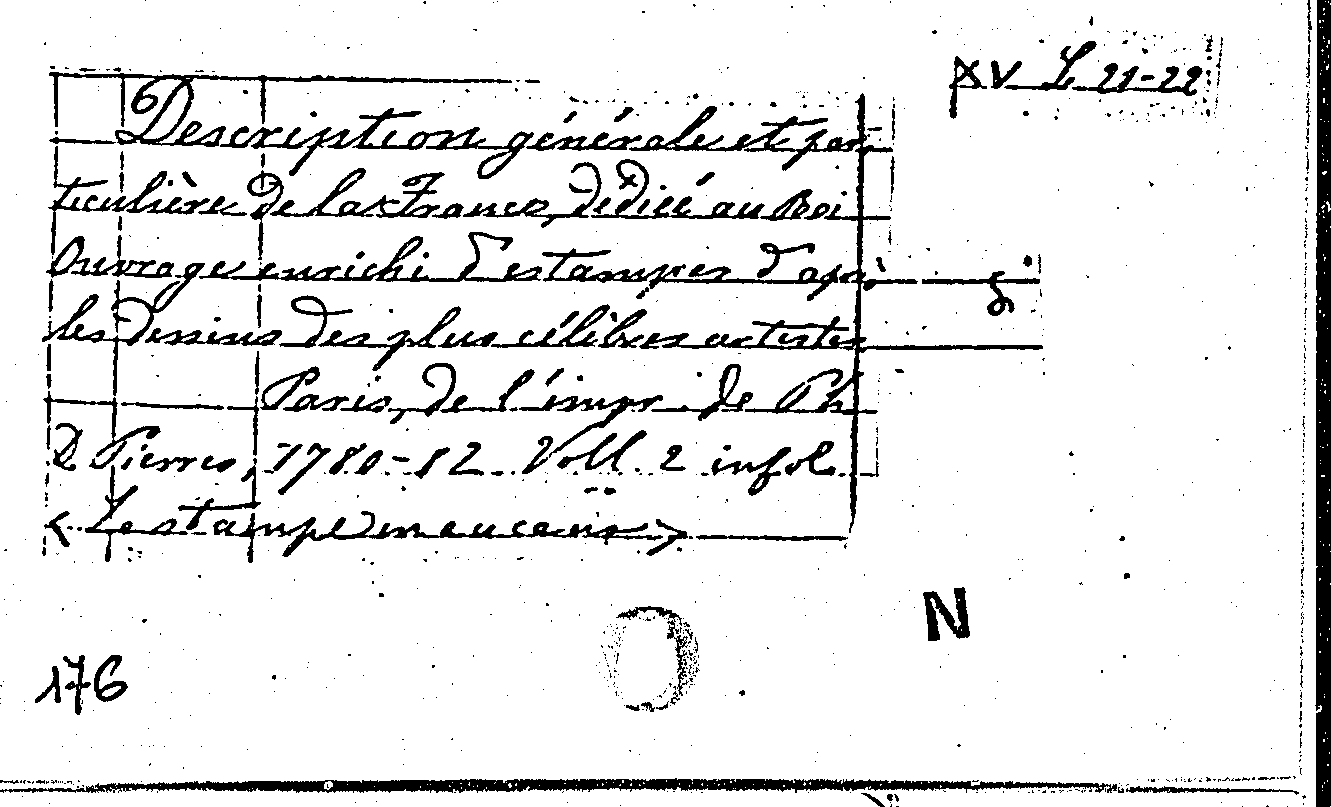 XV L 21-22
Description générale et par-
ticulière de la France, dédiée au Roi
Ouvrage enrichi d'estampes d'apr
les dessins des plus célèbres artistes
Paris, de l'impr. de Ph
D Pierres, 1780-82. Voll. 2 in fol.
(Le stampe mancano)
N
176